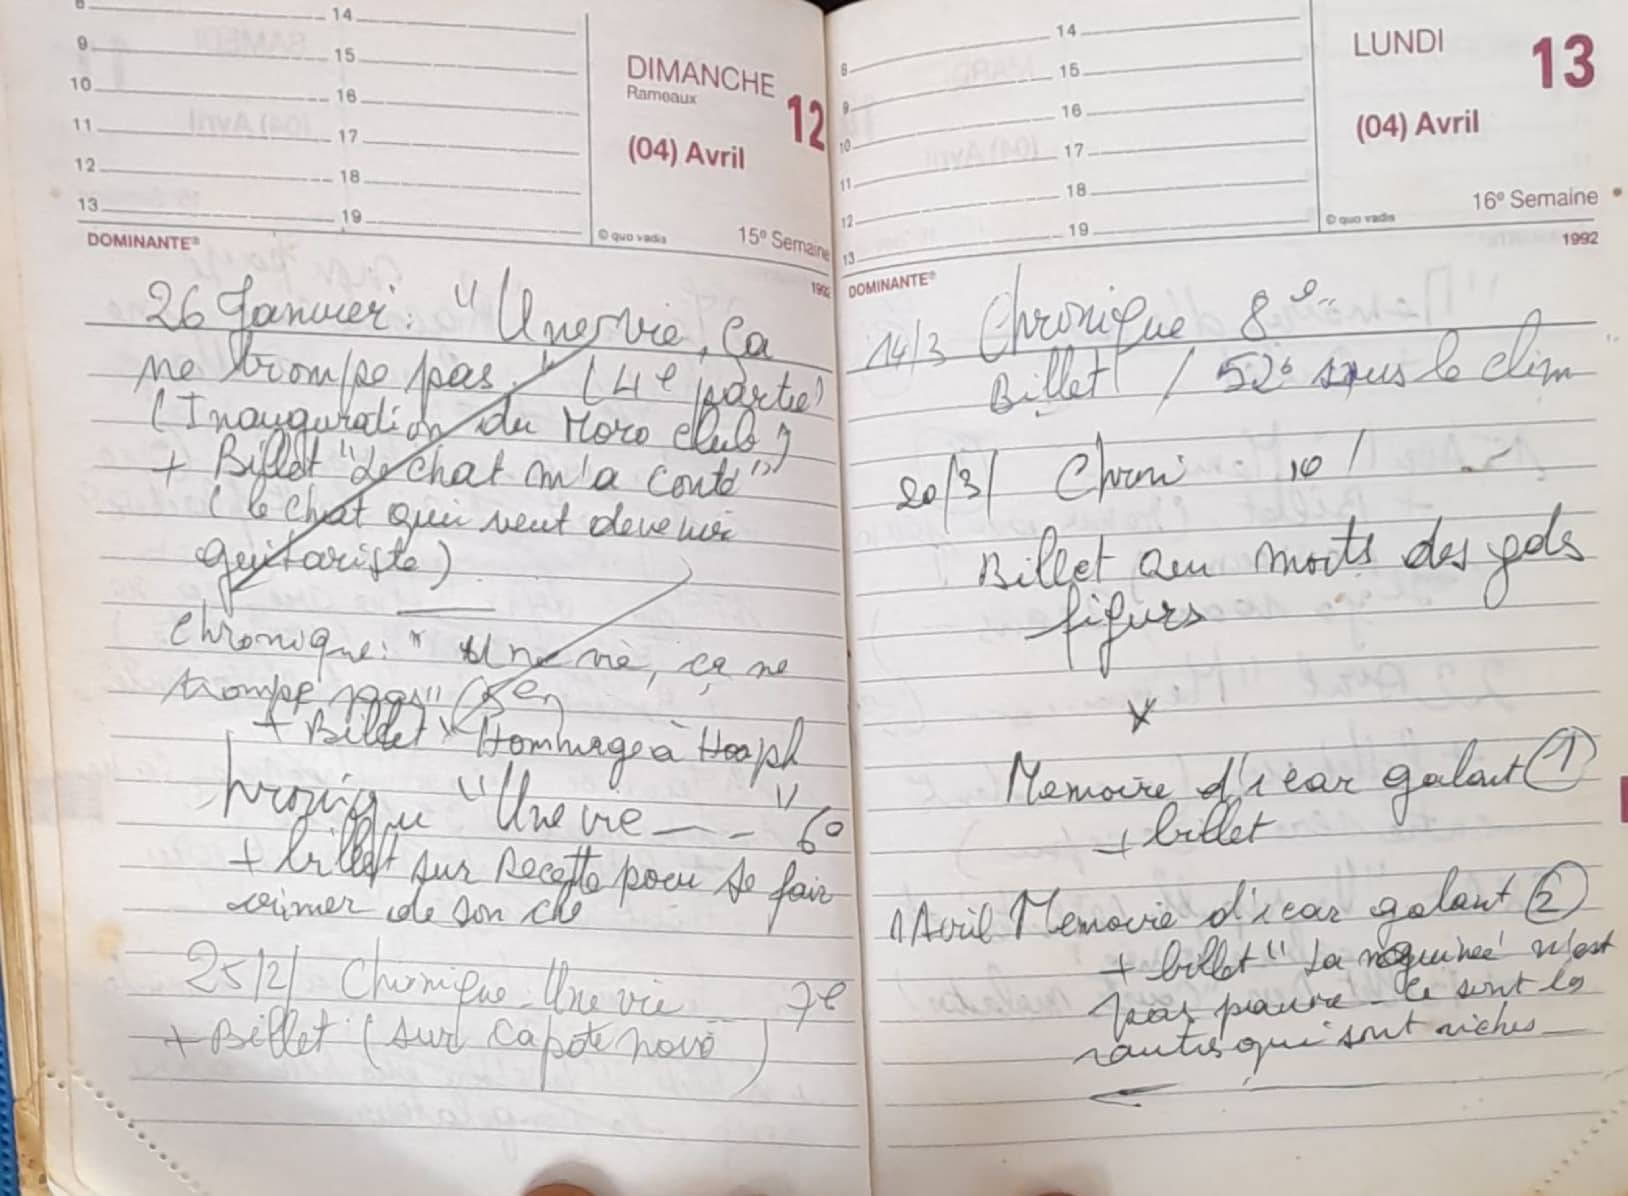 8 14
9 15
10 16
11 17
12 18
13 19
DIMANCHE
Rameaux
12
(04) Avril
© quo vadis
15e Semaine
DOMINANTE®
1992
26 Janvier : "Une vie, ça
ne trompe pas." (4e partie)
(Inauguration du Moro club)
+ Billet "Le chat m'a conté"
(le chat qui veut devenir
guitariste)
Chronique : "Une vie, ça ne
trompe pas" (5e)
+ Billet "Hommage à
"Une vie — - - " 6e
+ billet sur Recette pour se fair
aimer de son
25/2/ Chronique : Une vie 7e
+ Billet (sur capote
8 14
9 15
10 16
11 17
12 18
13 19
LUNDI
13
(04) Avril
16e Semaine
© quo vadis
1992
DOMINANTE®
14/3 Chronique 8e
Billet / 52e sous le clim
20/3/ Chroni 10 /
Billet aux morts des
x
Memoire d'icar galant 1
+ billet
1 Avril Memoire d'icar galant 2
+ billet "La n'est
pas pauvre - Ce sont les
autres qui sont riches